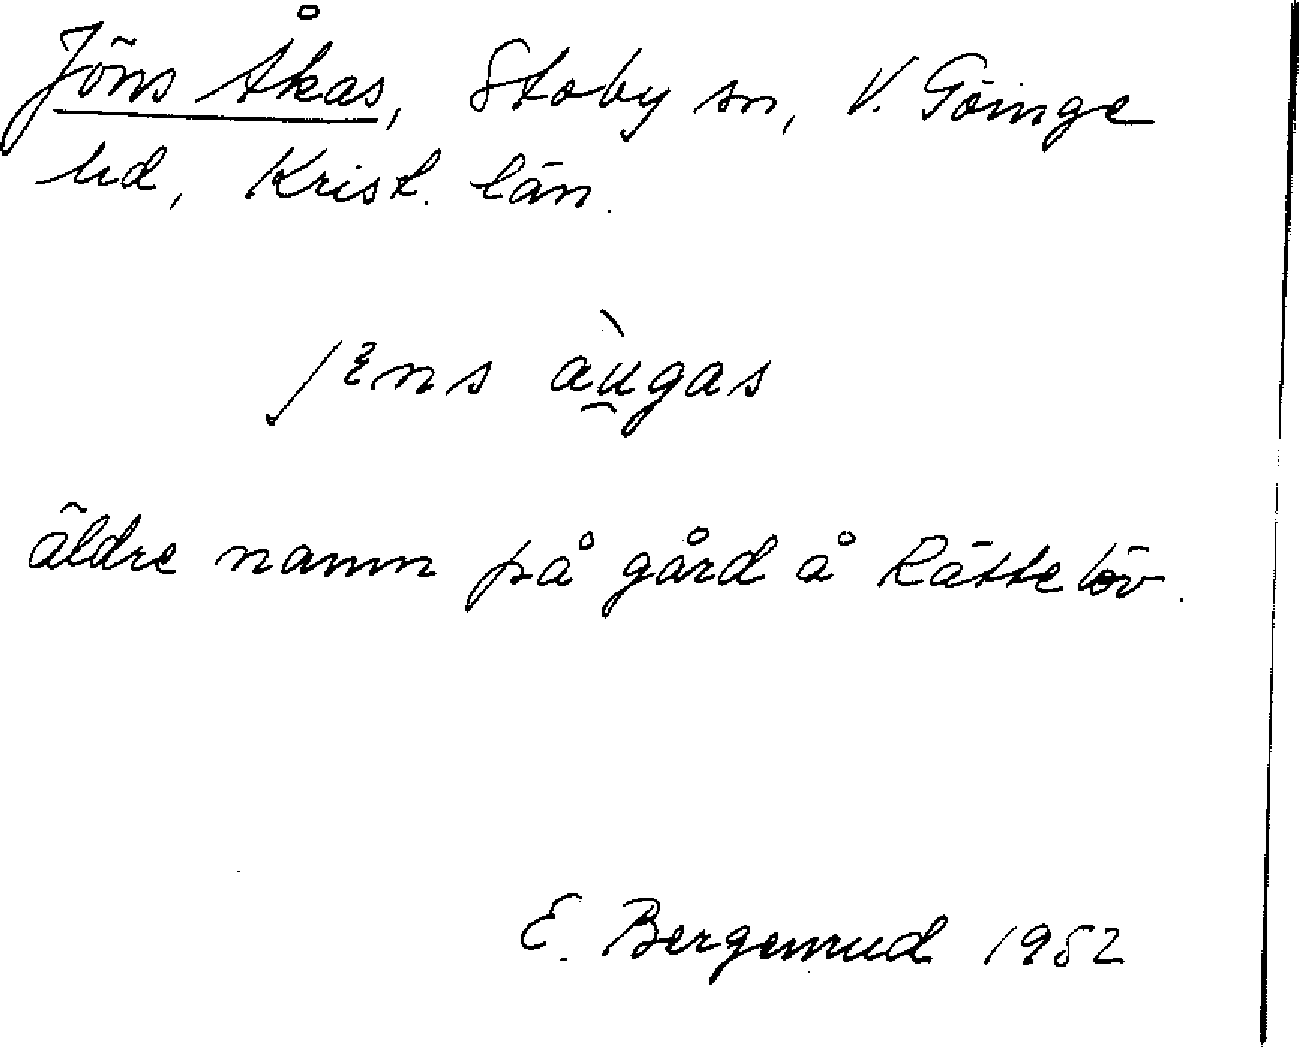 Jöns Åkas, Stoby sn, V. Göinge
hd, Krist. län.
jɛns àu̯gas
äldre namn på gård å Rättelöv.
E. Bergenrud 1952